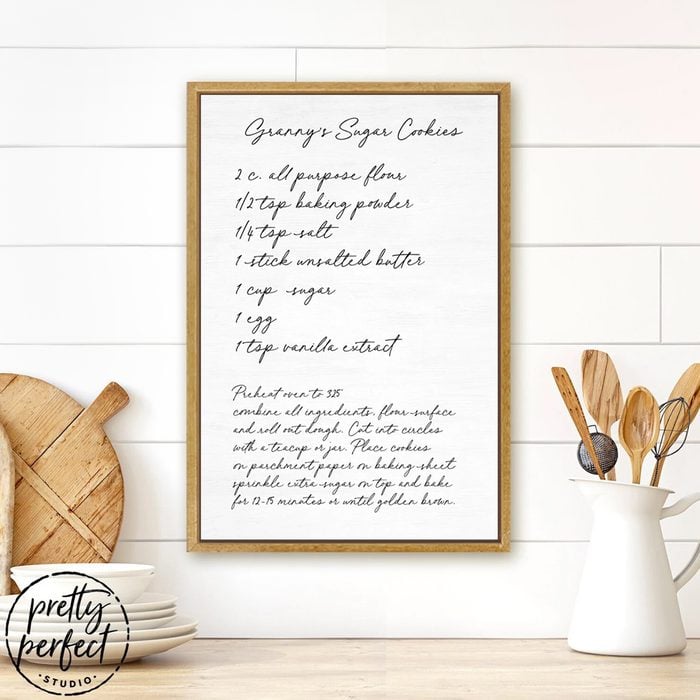 Granny's Sugar Cookies
2 c. all purpose flour
1/2 tsp baking powder
1/4 tsp salt
1 stick unsalted butter
1 cup sugar
1 egg
1 tsp vanilla extract
Preheat oven to 325
combine all ingredients, flour surface
and roll out dough. Cut into circles
with a teacup or jar. Place cookies
on parchment paper on baking sheet
sprinkle extra sugar on top and bake
for 12-15 minutes or until golden brown.
pretty
perfect
• STUDIO •